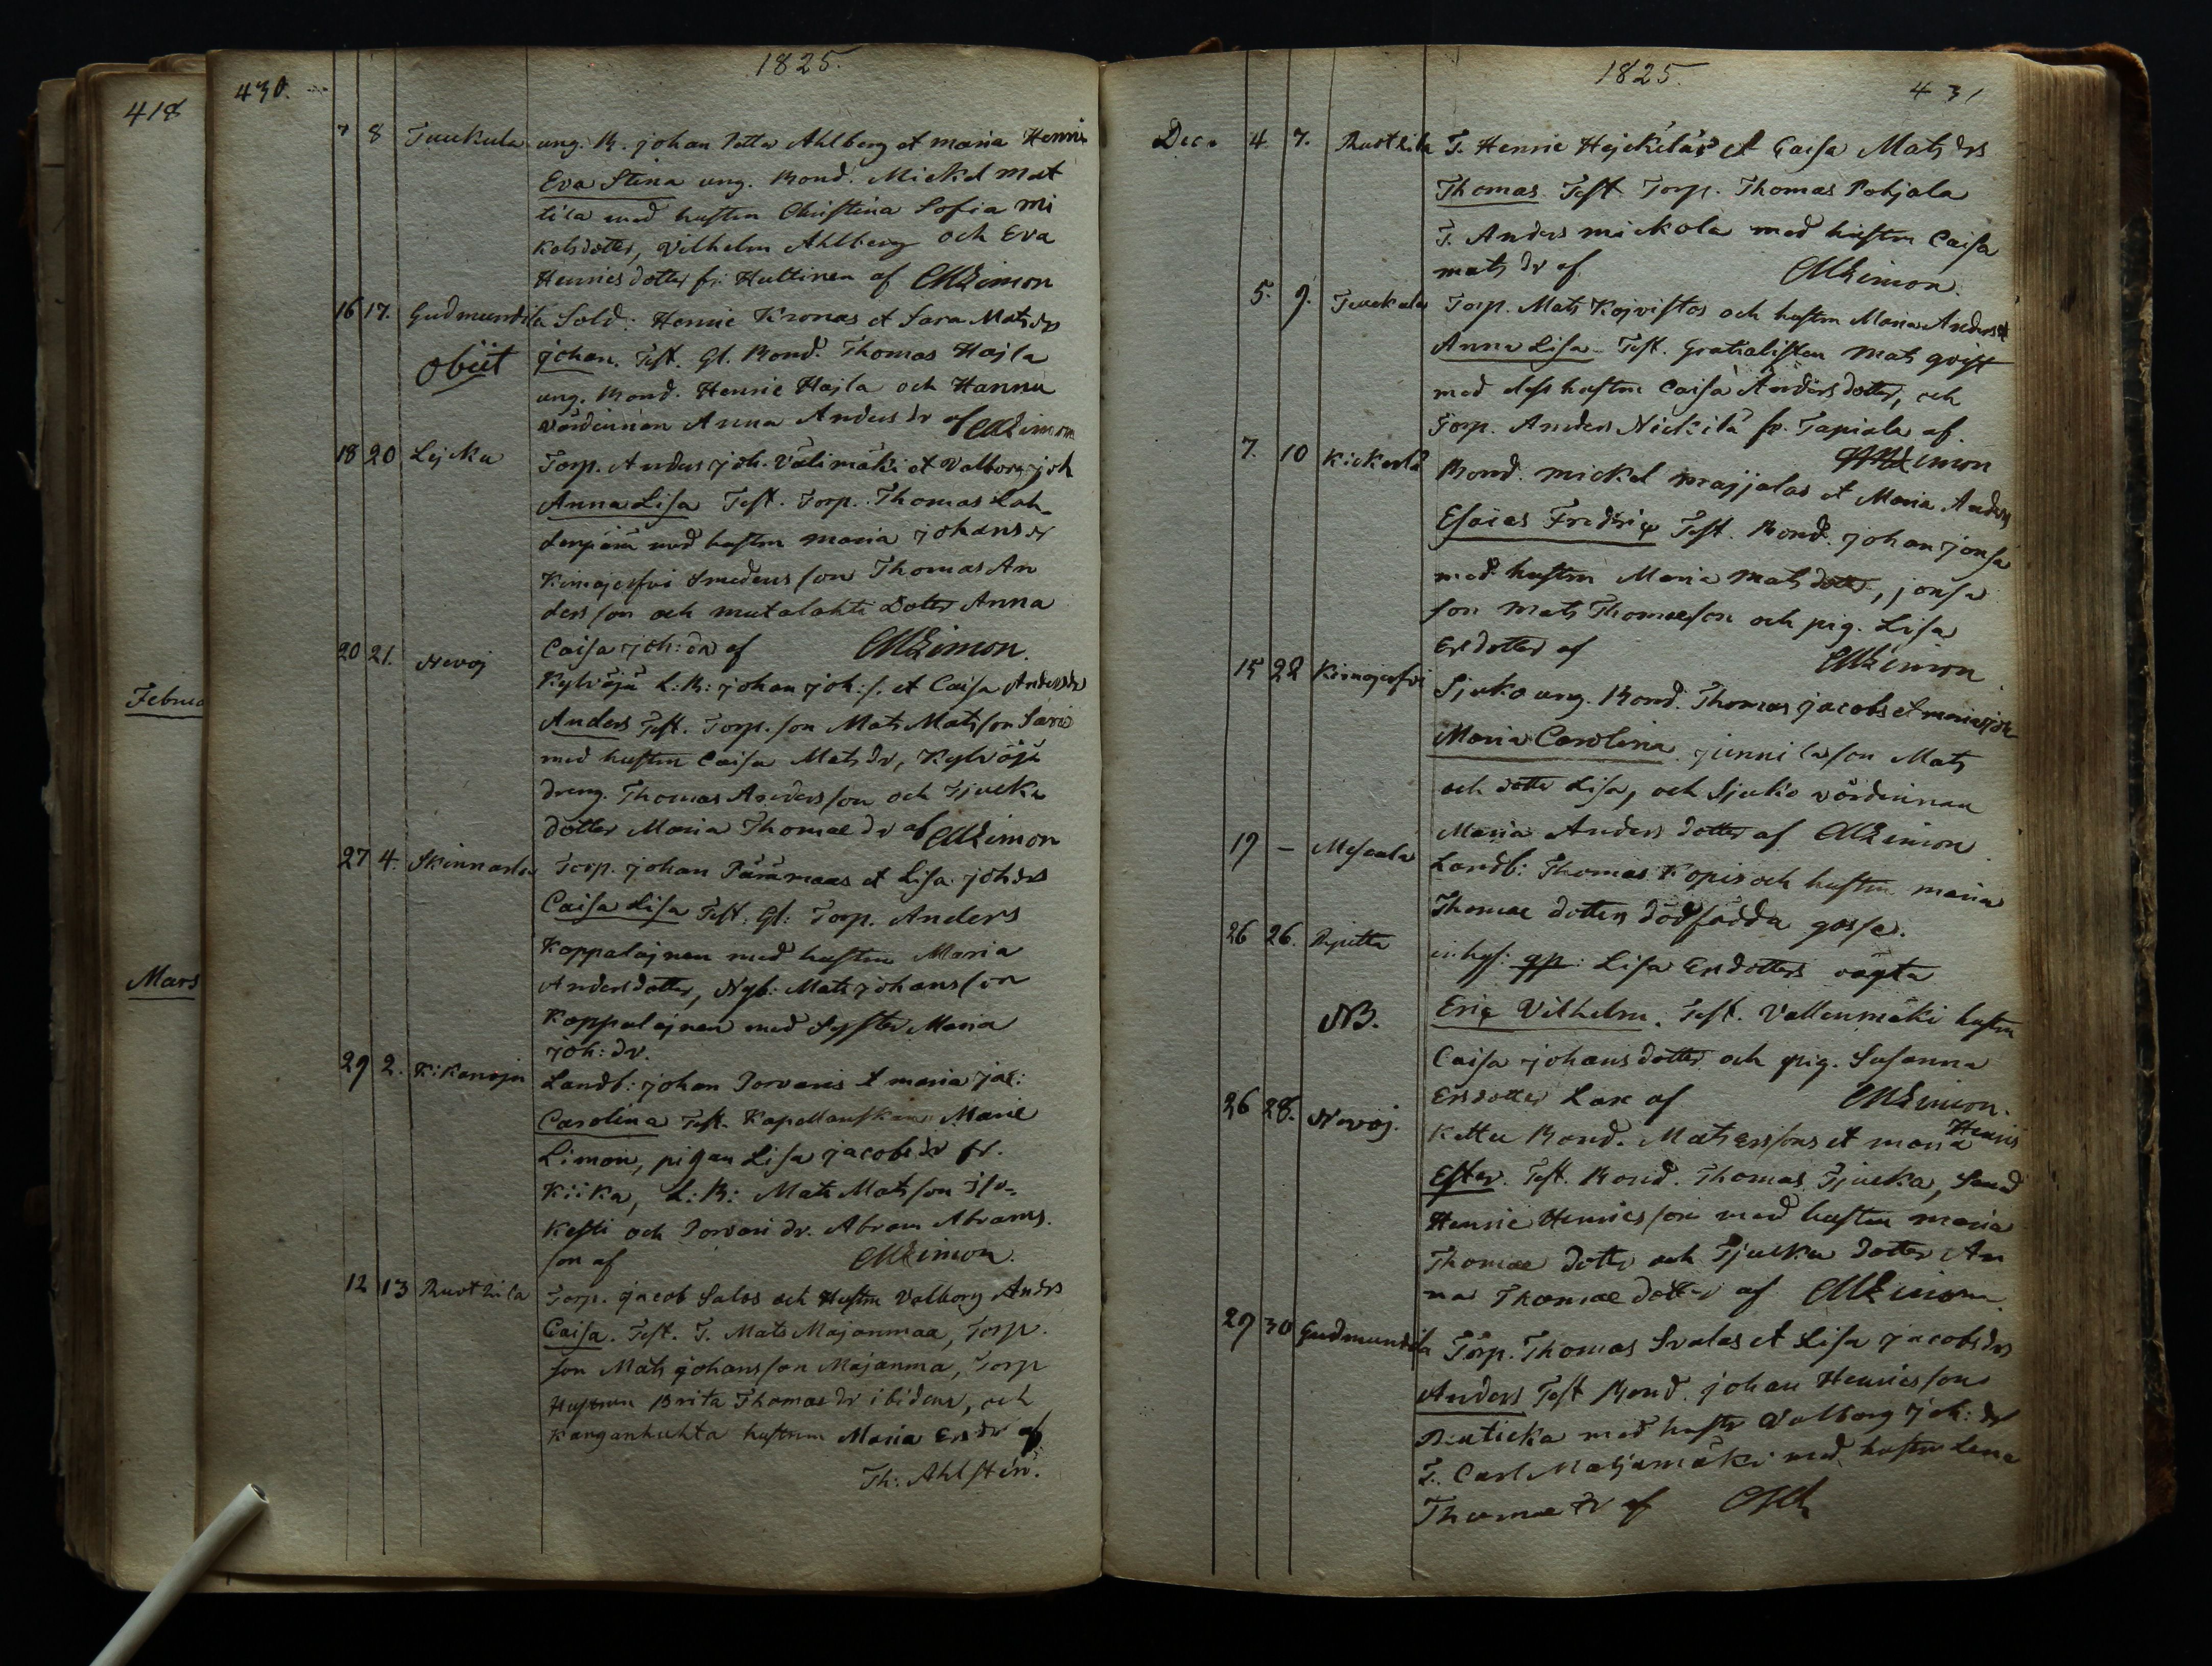 418
Februa
Mars
430.
1825.
7 8 Tuukula ung. B. Johan Petter Ahlberg et Maria Henris
Eva Stina ung. Bond. Mickel Mat
tila med hustru Christina Sofia Mi
kelsdotter, Vilhelm Ahlberg och Eva
Henricsdotter fr. Huttinen af CMLimon
16 17. Gudmundila Sold: Henric Kronas et Sara Matsdrs
Obiit Johan. Test. Gl. Bond. Thomas Hajla
ung. Bond. Henric Hajla och Hannu
värdinnan Anna Andersdr af CMLimon
18 20 Lejku Torp. Anders Joh. Välimäki et Valborg Joh
Anna Lisa Test. Torp. Thomas Lah-
denpää med hustru Maria Johansdr
Kimojerfvi Smedens son Thomas An
dersson och Mutalahti Doter Anna
Caisa Joh:dr af CMLimon.
20 21. Nevoj Kylvöjä L:B: Johan Joh:s. et Caisa Andersdr
Anders Test. Torp. son Mats Matsson Sario
med hustru Caisa Matsdr, Kylvöjä
dreng. Thomas Andersson och Tjucka
dotter Maria Thomaedr af CMLimon
27 4. Skinnarla Torp. Johan Päärmaas et Lisa Johdrs
Caisa Lisa Test. Gl: Torp. Anders
Koppalajnen med hustru Maria
Andersdotter, Nyb: Mats Johansson
Koppalajnen med Syster Maria
Joh:dr.
29 2. Kikanoja Landb: Johan Torvaris et Maria Jac:
Carolina Test. Kapellanskan Marie
Limon, pigan Lisa Jacobsdr fr.
Kiika, L:B: Mats Matsson Iso-
kesti och Torvari dr. Abram Abrams.
son af CMLimon.
12 13 Rusthila Torp. Jacob Salos och Hustru Valborg Andrs
Caisa. Test. T. Mats Majanmaa, Torp.
son Mats Johansson Majanma, Torp
Hustrun Brita Thomaedr ibidem, och
Kanganhuhta hustrun Maria Ersdr af
Th: Ahlstén.
1825.
431
Dec. 4. 7. Rusthila T. Henric Hejckiläs et Caisa Matsdrs
Thomas Test Torp. Thomas Pohjala
T. Anders Mickola med hustru Caisa
Matsdr af CMLimon.
5. 9. Tuukula Torp. Mats Kojvistos och hustru Maria Anders
Anna Lisa Test. Gratialisten Mats Qvist
med dess hustru Caisa Andersdotter, och
Torp. Anders Nickilä fr. Tapiola af.
CMLimon
7. 10 Kickerlä Bond. Mickel Prajjalas et Maria Anders
Esaias Fredric Test. Bond. Johan Jonsa
med hustru Maria Matsdotter, Jonsa
son Mats Thomaeson och pig. Lisa
Ersdotter af CMLimon
15 22 Kimojerfvi Sjuko ung. Bond. Thomas Jacobs et Maria Joh-
Maria Carolina. Junnila son Mats
och dotter Lisa, och Sjuko värdinnan
Maria Andersdotter af CMLimon.
19 – Mescala Landb: Thomas Kopis och hustru Maria
Thomae dotters dödfödda gosse.
26 26. Ryitta inhys: qp: Lisa Ersdotters oägta
NB. Eric Vilhelm. Test. Vallenmäki hustru
Caisa Johansdotter och pig. Susanna
Ersdotter Lax af CMLimon.
26 28. Nevoj. Kettu Bond. Mats Erssons et Maria Henris
Ester. Test. Bond. Thomas Tjucka, Smed
Henric Henricsson med hustru Maria
Thomae dotter och Tjucka dotter An
na Thomae dotter af CMLimon.
29 30 Gudmundila Torp. Thomas Svalas et Lisa Jacobsdrs
Anders Test Bond. Johan Henricsson
Ruticka med hustr Valborg Joh:dr
T. Carl Matjamäki med hustru Lena
Thomae dr af